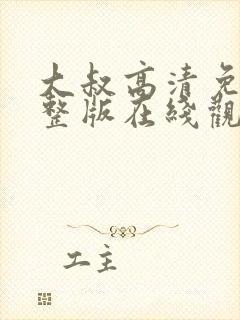 大叔高清免
整版在綫觀
工主